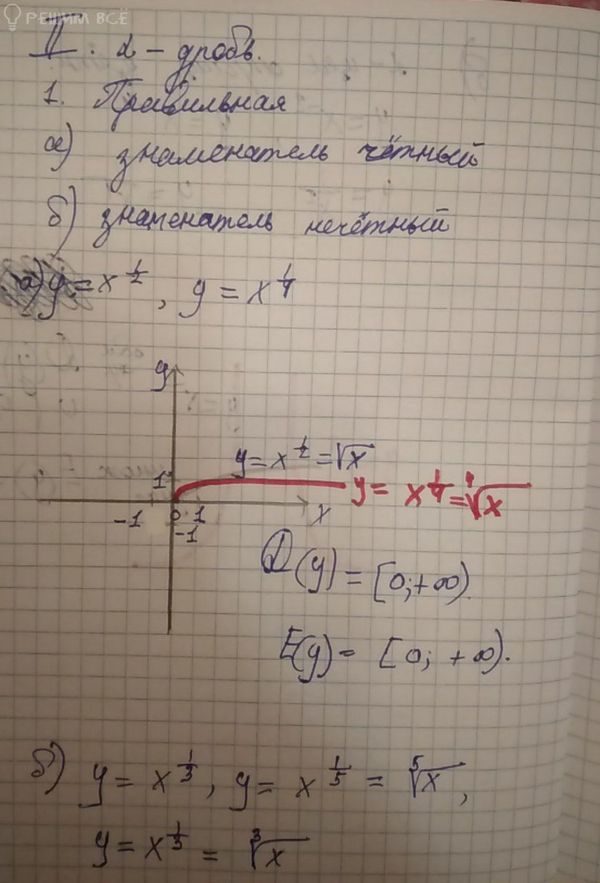 РЕШИМ ВСЁ
II. α - дробь.
1. Правильная
а) знаменатель чётный
б) знаменатель нечётный
а) y = x^{1/2}, y = x^{1/4}
y
y = x^{1/2} = √x
1
y = x^{1/4} = ⁴√x
-1 0 1 x
-1
D(y) = [0; +∞)
E(y) = [0; +∞).
б) y = x^{1/3}, y = x^{1/5} = ⁵√x,
y = x^{1/3} = ³√x